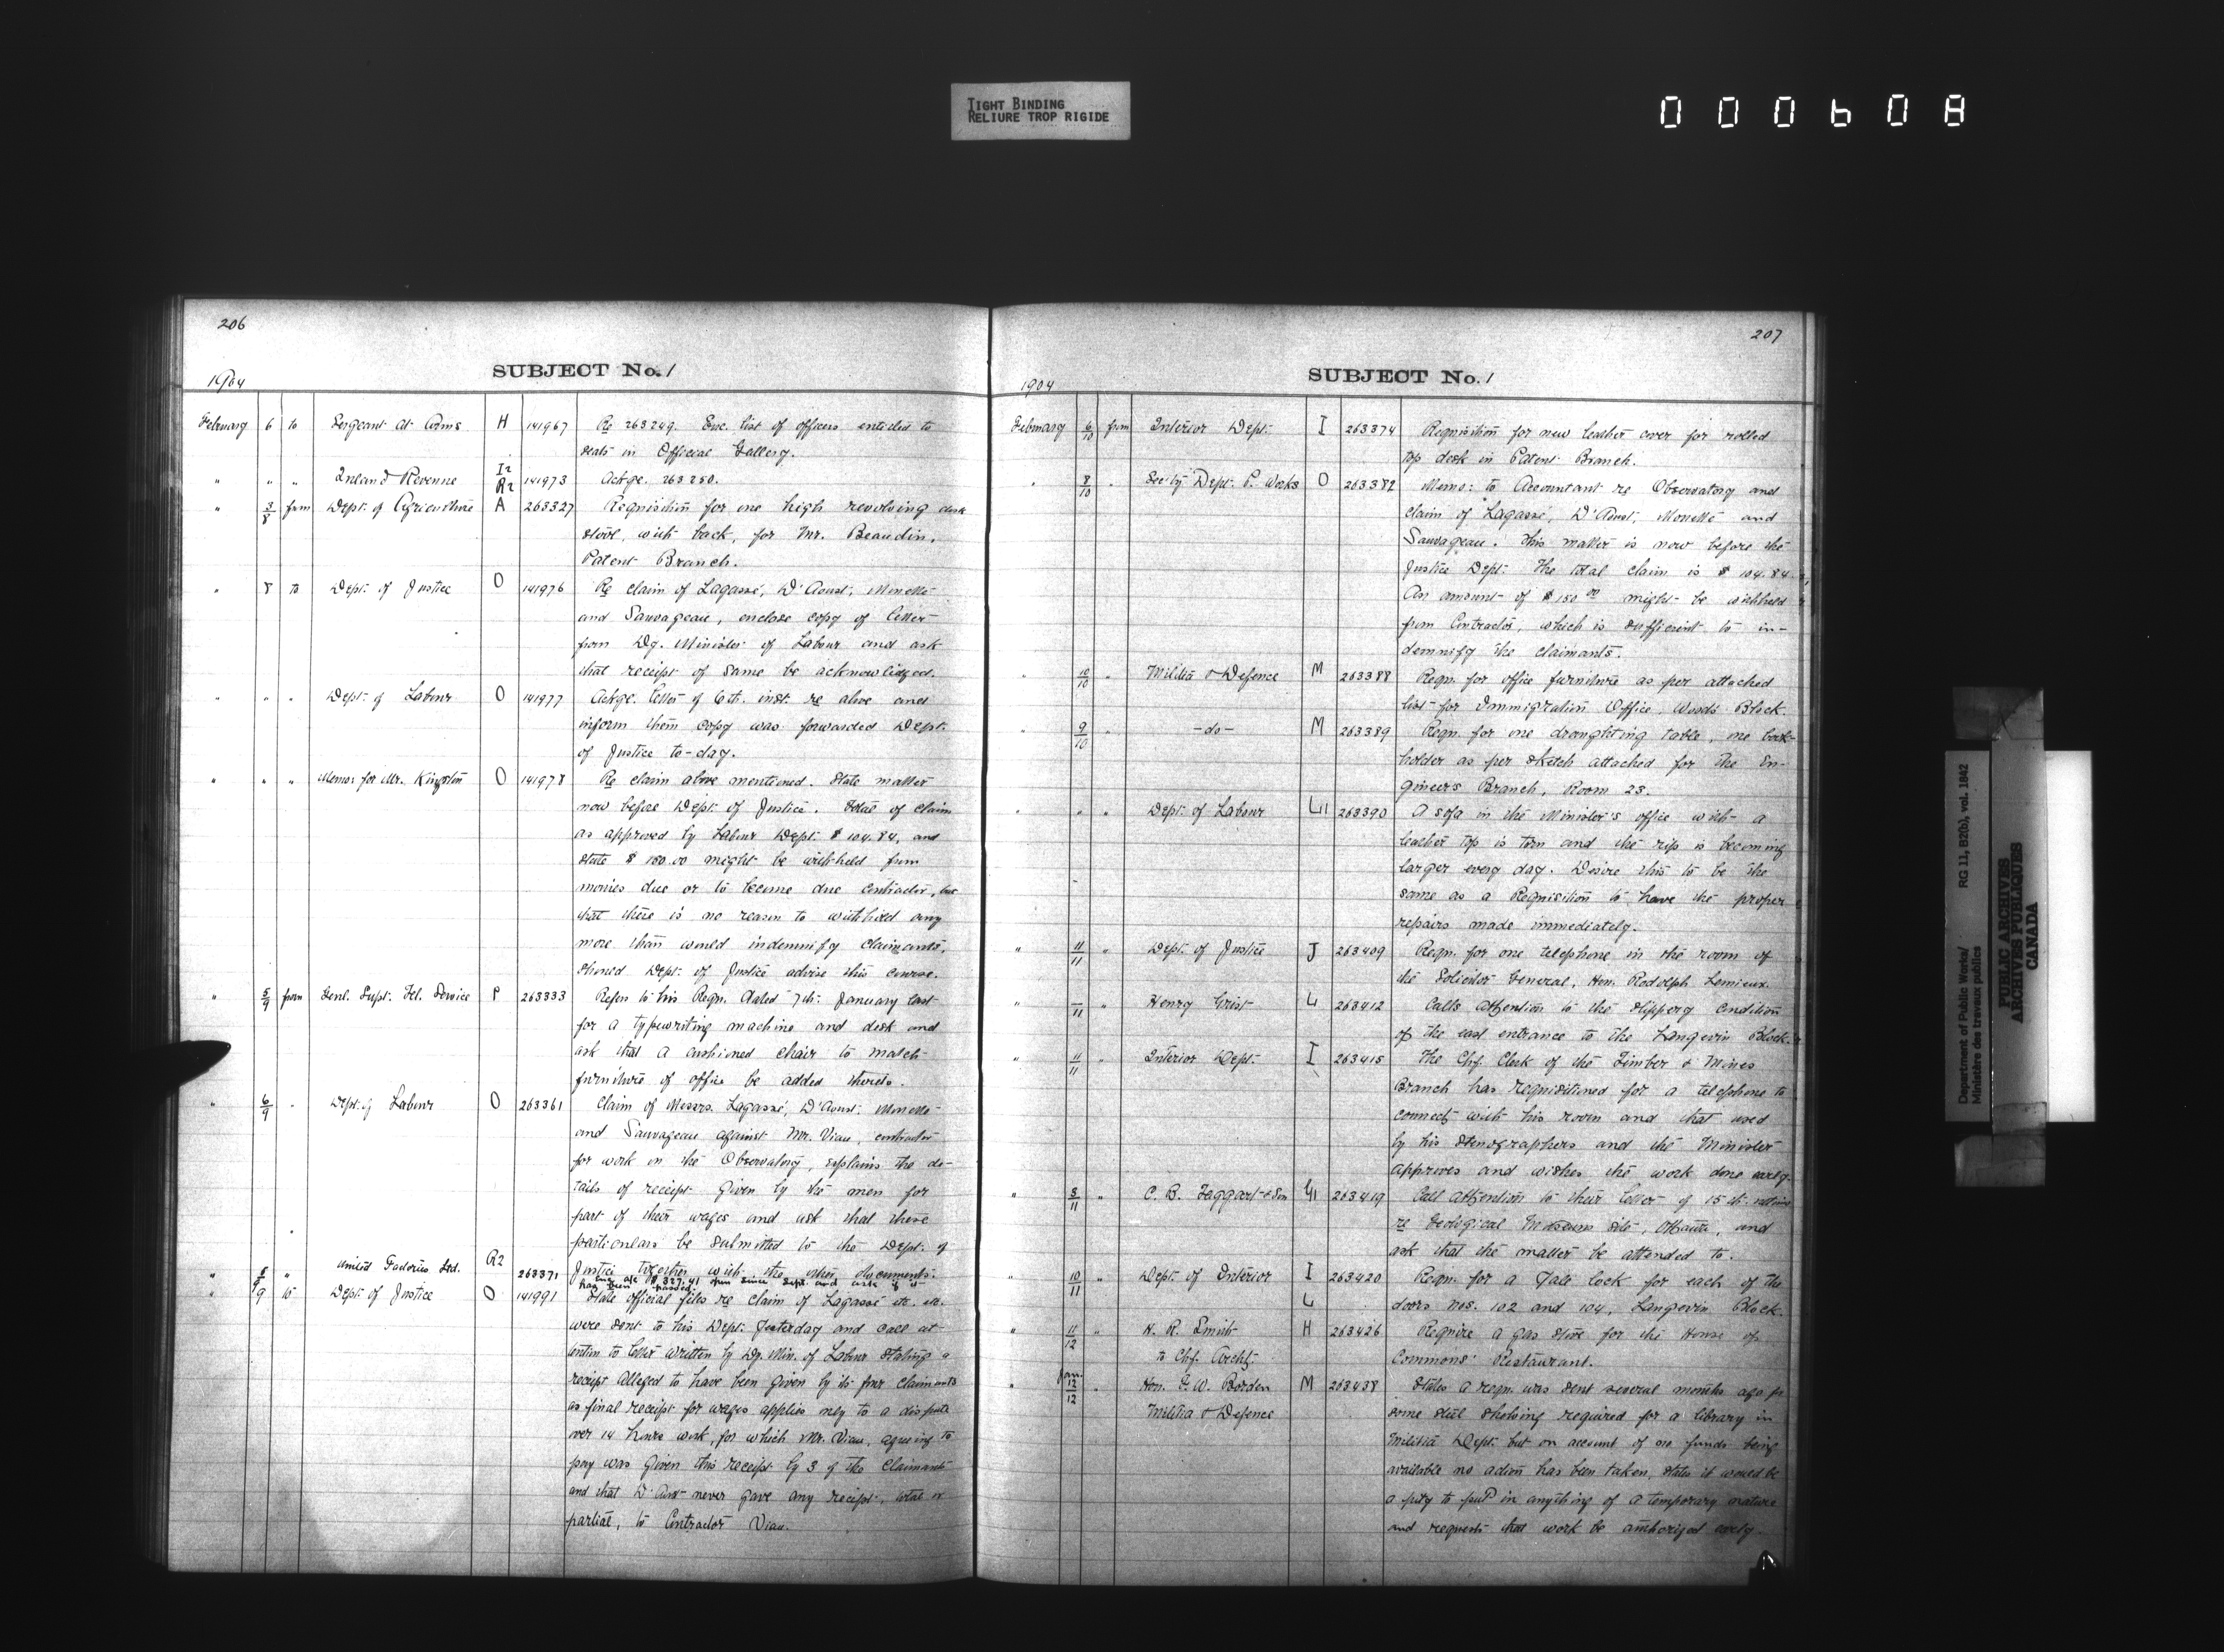 TIGHT BINDING
RELIURE TROP RIGIDE
000608
206
SUBJECT No. 1
1904
February 6 to Sergeant at Arms H 141967 Re 263249. Enc. list of officers entitled to
seats in Official Gallery.
" " " Inland Revenue I2 R2 141973 Ackge. 263250.
" 3/8 from Dept. of Agriculture A 263327 Requisition for one high revolving desk
stool, with back, for Mr. Beaudin,
Patent Branch.
" 8 to Dept. of Justice O 141976 Re claim of Lagassé, D'Aoust, Monette
and Sauvageau, enclose copy of letter
from Dy. Minister of Labour and ask
that receipt of same be acknowledged.
" " " Dept. of Labour O 141977 Ackge. letter of 6th. inst. re above and
inform them copy was forwarded Dept.
of Justice to-day.
" " " Memo: for Mr. Kingston O 141978 Re claim above mentioned. State matter
now before Dept. of Justice. Total of claim
as approved by Labour Dept. $104.84, and
state $150.00 might be withheld from
monies due or to become due contractor, but
that there is no reason to withhold any
more than would indemnify claimants,
should Dept. of Justice advise this course.
" 5/9 from Genl. Supt. Tel. Service P 263333 Refers to his Reqn. dated 7th. January last
for a typewriting machine and desk and
ask that a cushioned chair to match
furniture of office be added thereto.
" 6/9 " Dept. of Labour O 263361 Claim of Messrs. Lagassé, D'Aoust, Monette
and Sauvageau against Mr. Viau, contractor
for work on the Observatory, explains the de-
tails of receipt given by the men for
part of their wages and ask that these
particulars be submitted to the Dept. of
Justice together with the other documents.
" 8/9 " United Factories Ltd. R2 263371 $327.41 since Sept. and ask if it
has been passed.
" 9 to Dept. of Justice O 141991 State official files re claim of Lagassé etc. etc.
were sent to his Dept. yesterday and call at-
tention to letter written by Dy. Min. of Labour stating a
receipt alleged to have been given by the four claimants
as final receipt for wages applies only to a dispute
over 14 hours work, for which Mr. Viau, agreeing to
pay was given this receipt by 3 of the claimants
and that D'Aoust never gave any receipt, total or
partial, to Contractor Viau.
207
SUBJECT No. 1
1904
February 6/10 from Interior Dept. I 263374 Requisition for new leather cover for rolled
top desk in Patent Branch.
" 8/10 " Sec'ty Dept. P. Works O 263382 Memo: to Accountant re Observatory and
claim of Lagassé, D'Aoust, Monette and
Sauvageau. This matter is now before the
Justice Dept. The total claim is $104.84.
An amount of $150.00 might be withheld
from Contractor, which is sufficient to in-
demnify the claimants.
" 10/10 " Militia & Defence M 263388 Reqn. for office furniture as per attached
list for Immigration Office, Woods Block.
" 9/10 " -do- M 263389 Reqn. for one draughting table, one book-
holder as per sketch attached for the En-
gineers Branch, Room 23.
" " Dept. of Labour L1 263390 A sofa in the Minister's office with a
leather top is torn and the rip is becoming
larger every day. Desire this to be the
same as a Requisition to have the proper
repairs made immediately.
" 11/11 " Dept. of Justice J 263409 Reqn. for one telephone in the room of
the Solicitor General, Hon. Rodolph Lemieux.
" —/11 " Henry Grist L 263412 Calls attention to the slippery condition
of the east entrance to the Langevin Block.
" 11/11 " Interior Dept. I 263415 The Chf. Clerk of the Timber & Mines
Branch has requisitioned for a telephone to
connect with his room and that used
by his stenographers and the Minister
approves and wishes the work done early.
" 8/11 " C. B. Taggart & Son G1 263419 Call attention to their letter of 15th. ultimo
re Geological Museum site, Ottawa, and
ask that the matter be attended to.
" 10/11 " Dept. of Interior I 263420 Reqn. for a Yale lock for each of the
L doors nos. 102 and 104, Langevin Block.
" 11/12 " H. R. Smith H 263426 Require a gas stove for the House of
to Chf. Archt. Commons' Restaurant.
" Jan. 12/12 " Hon. F. W. Borden M 263438 States a reqn. was sent several months ago for
Militia & Defence some steel shelving required for a library in
Militia Dept. but on account of no funds being
available no action has been taken, states it would be
a pity to put in anything of a temporary nature
and requests that work be authorized early.
Department of Public Works/ RG 11, B2(b), vol. 1842
Ministère des travaux publics
PUBLIC ARCHIVES
ARCHIVES PUBLIQUES
CANADA